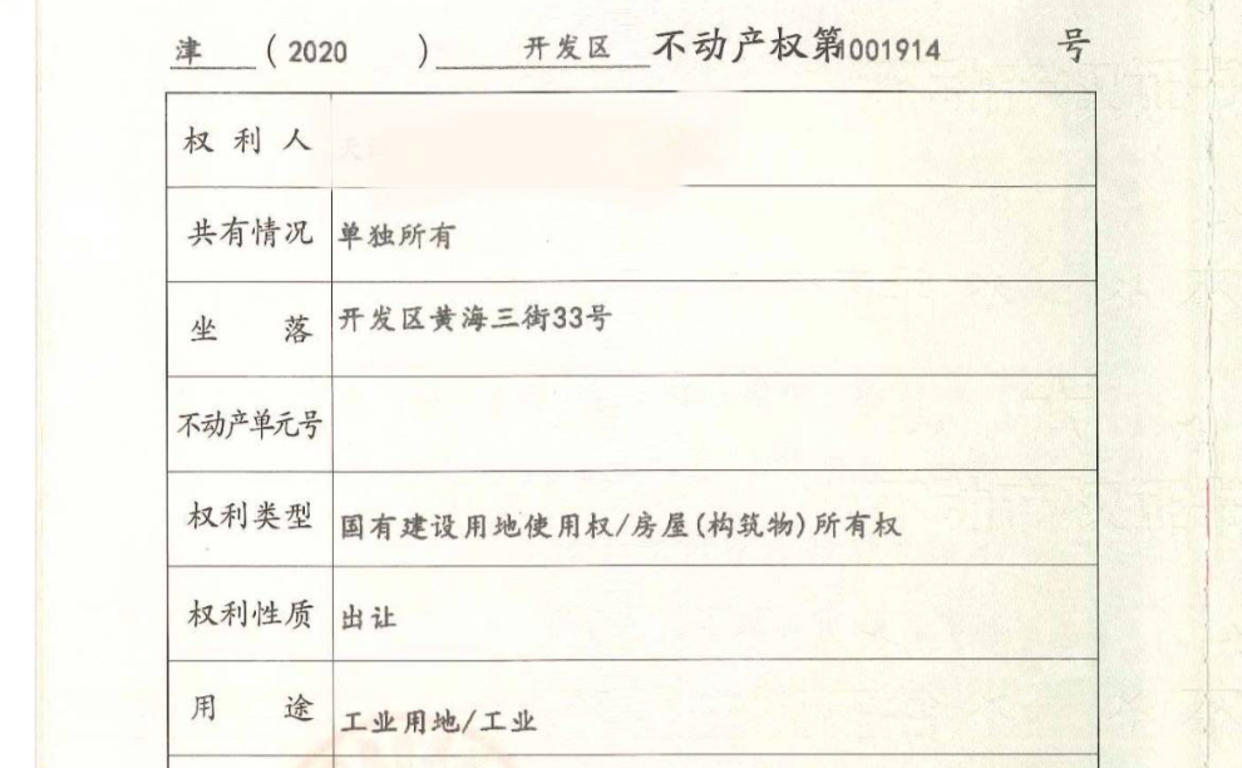 津 （2020 ） 开发区 不动产权第1001914 号
权利人
共有情况 单独所有
坐落 开发区黄海三街33号
不动产单元号
权利类型 国有建设用地使用权/房屋(构筑物)所有权
权利性质 出让
用途 工业用地/工业